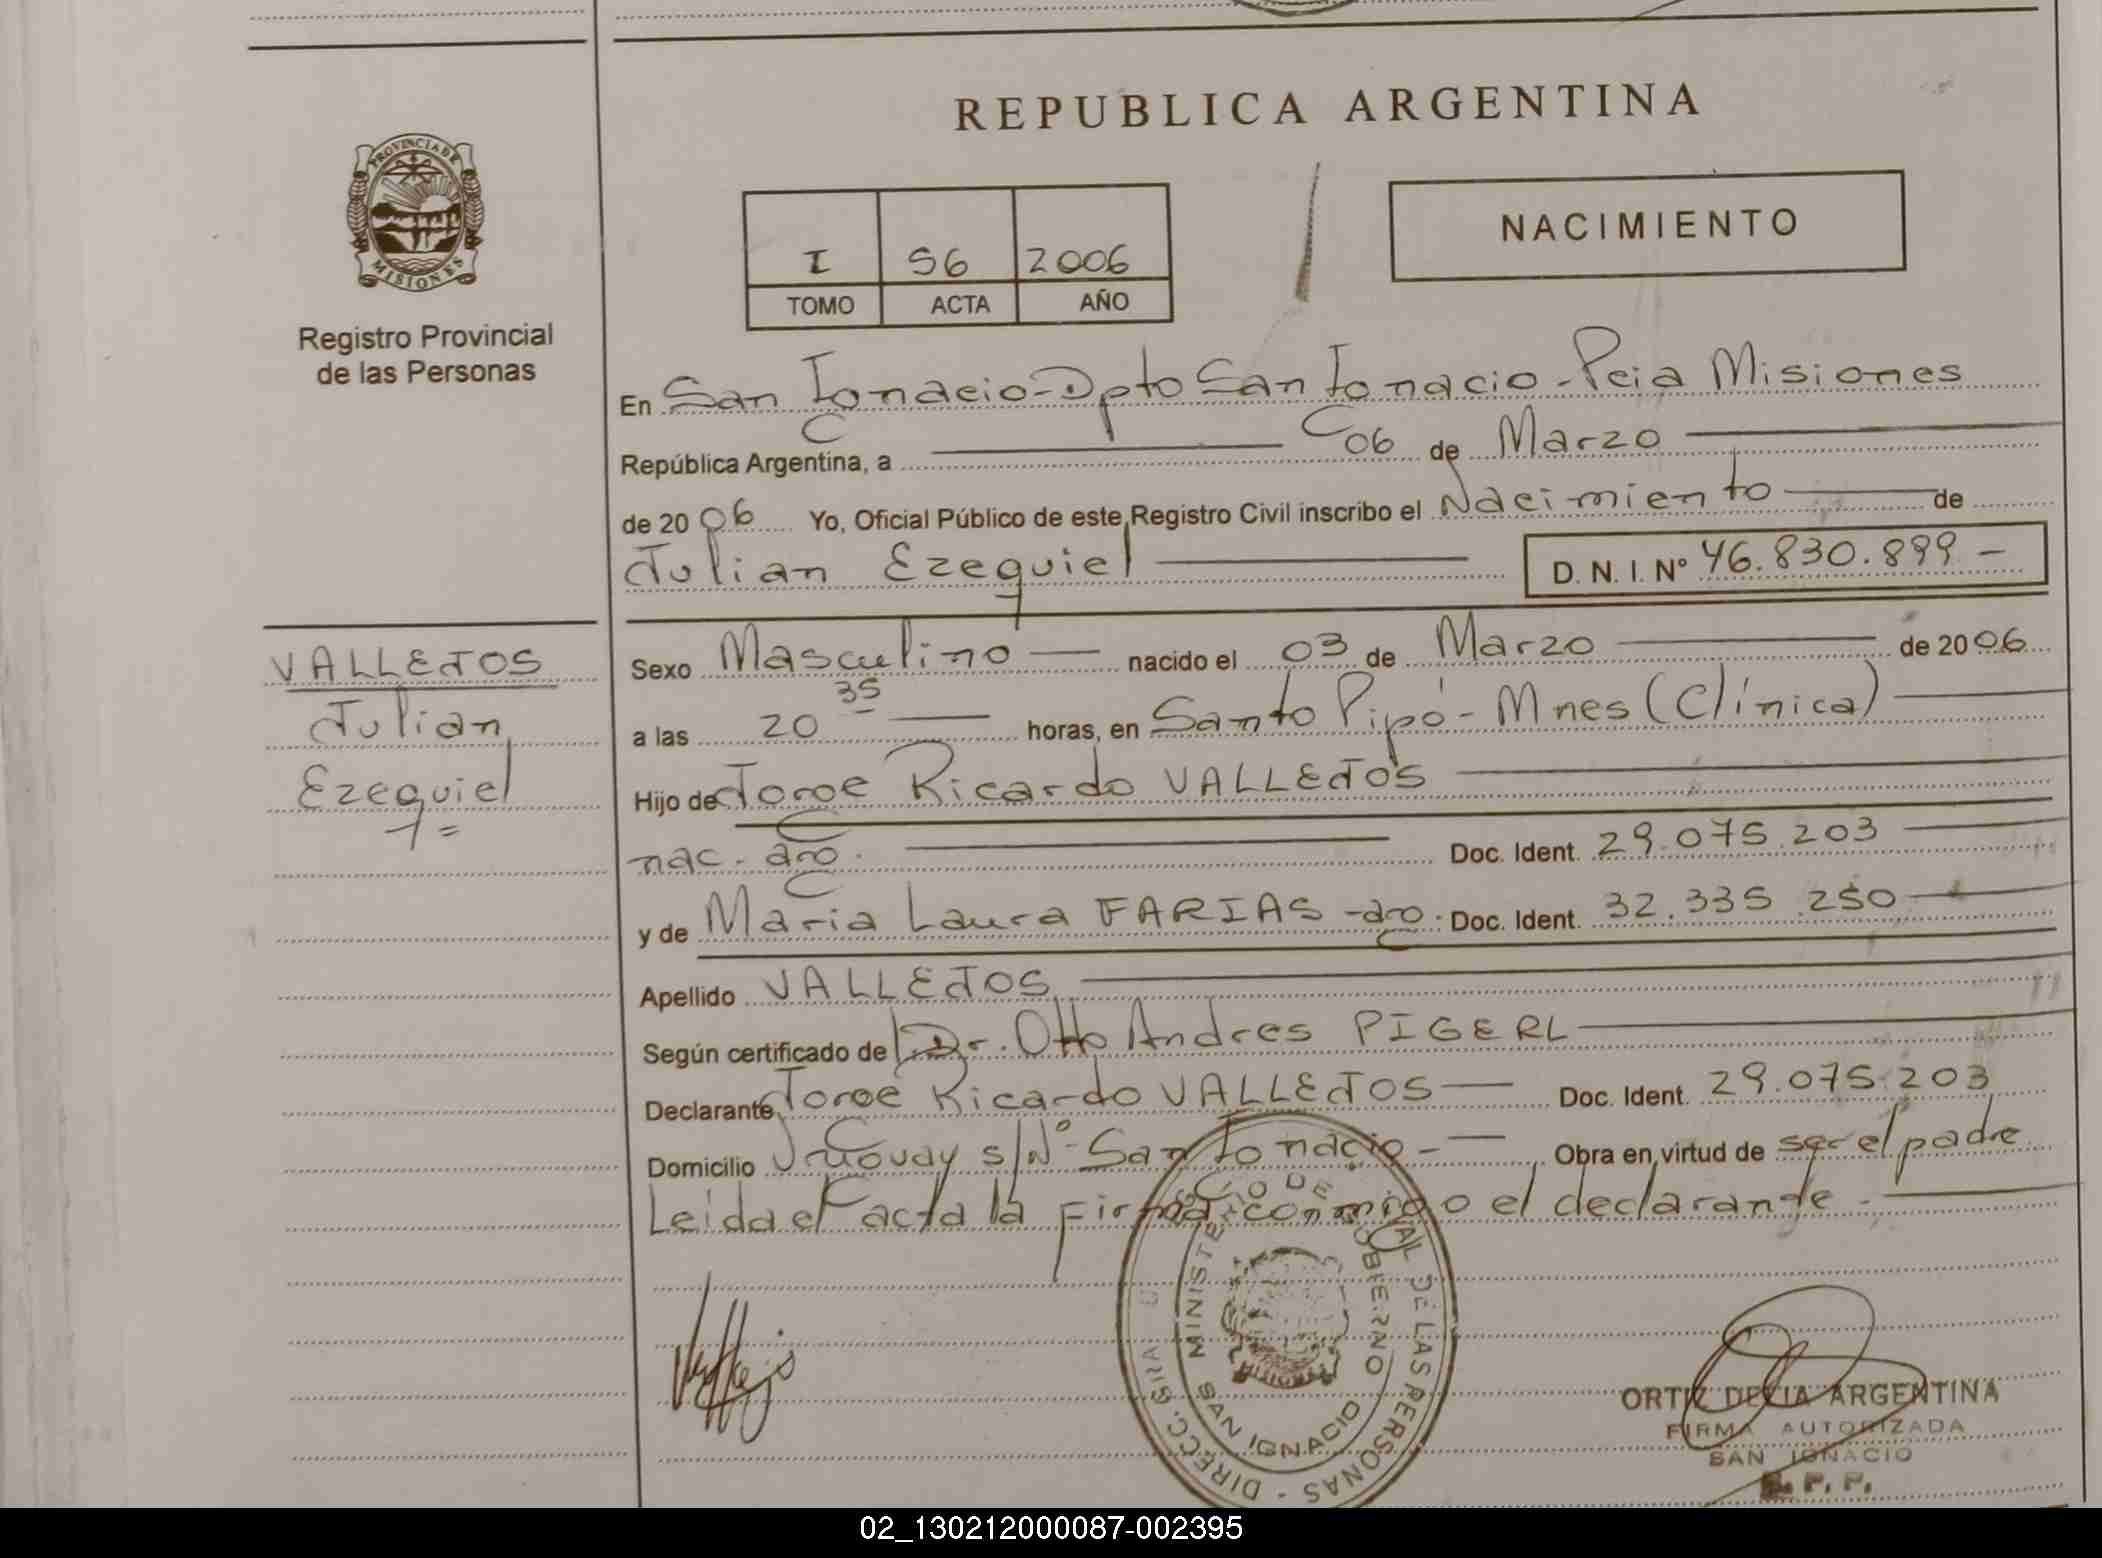 REPUBLICA ARGENTINA
PROVINCIA DE
MISIONES
Registro Provincial
de las Personas
I 56 2006
TOMO ACTA AÑO
NACIMIENTO
En San Ignacio-Dpto San Ignacio-Pcia Misiones
República Argentina, a 06 de Marzo
de 2006 Yo, Oficial Público de este Registro Civil inscribo el Nacimiento de
Julian Ezequiel D. N. I. Nº 46.830.899 -
VALLEJOS
Julian
Ezequiel
Sexo Masculino nacido el 03 de Marzo de 2006
a las 20 35 horas, en Santo Pipó - Mnes (Clínica)
Hijo de Jorge Ricardo VALLEJOS
nac. arg. Doc. Ident. 29.075.203
y de Maria Laura FARIAS - arg. Doc. Ident. 32.335.250
Apellido VALLEJOS
Según certificado de Dr. Otto Andres PIGERL
Declarante Jorge Ricardo VALLEJOS Doc. Ident. 29.075.203
Domicilio Uruguay s/Nº - San Ignacio - Obra en virtud de ser el padre
Leida el acta la firma conmigo el declarante.
MINISTERIO DE GOBIERNO
SAN IGNACIO
DE LAS PERSONAS - DIRECC. GRAL
ORTIZ DELIA ARGENTINA
FIRMA AUTORIZADA
SAN IGNACIO
R. P. P.
02_130212000087-002395